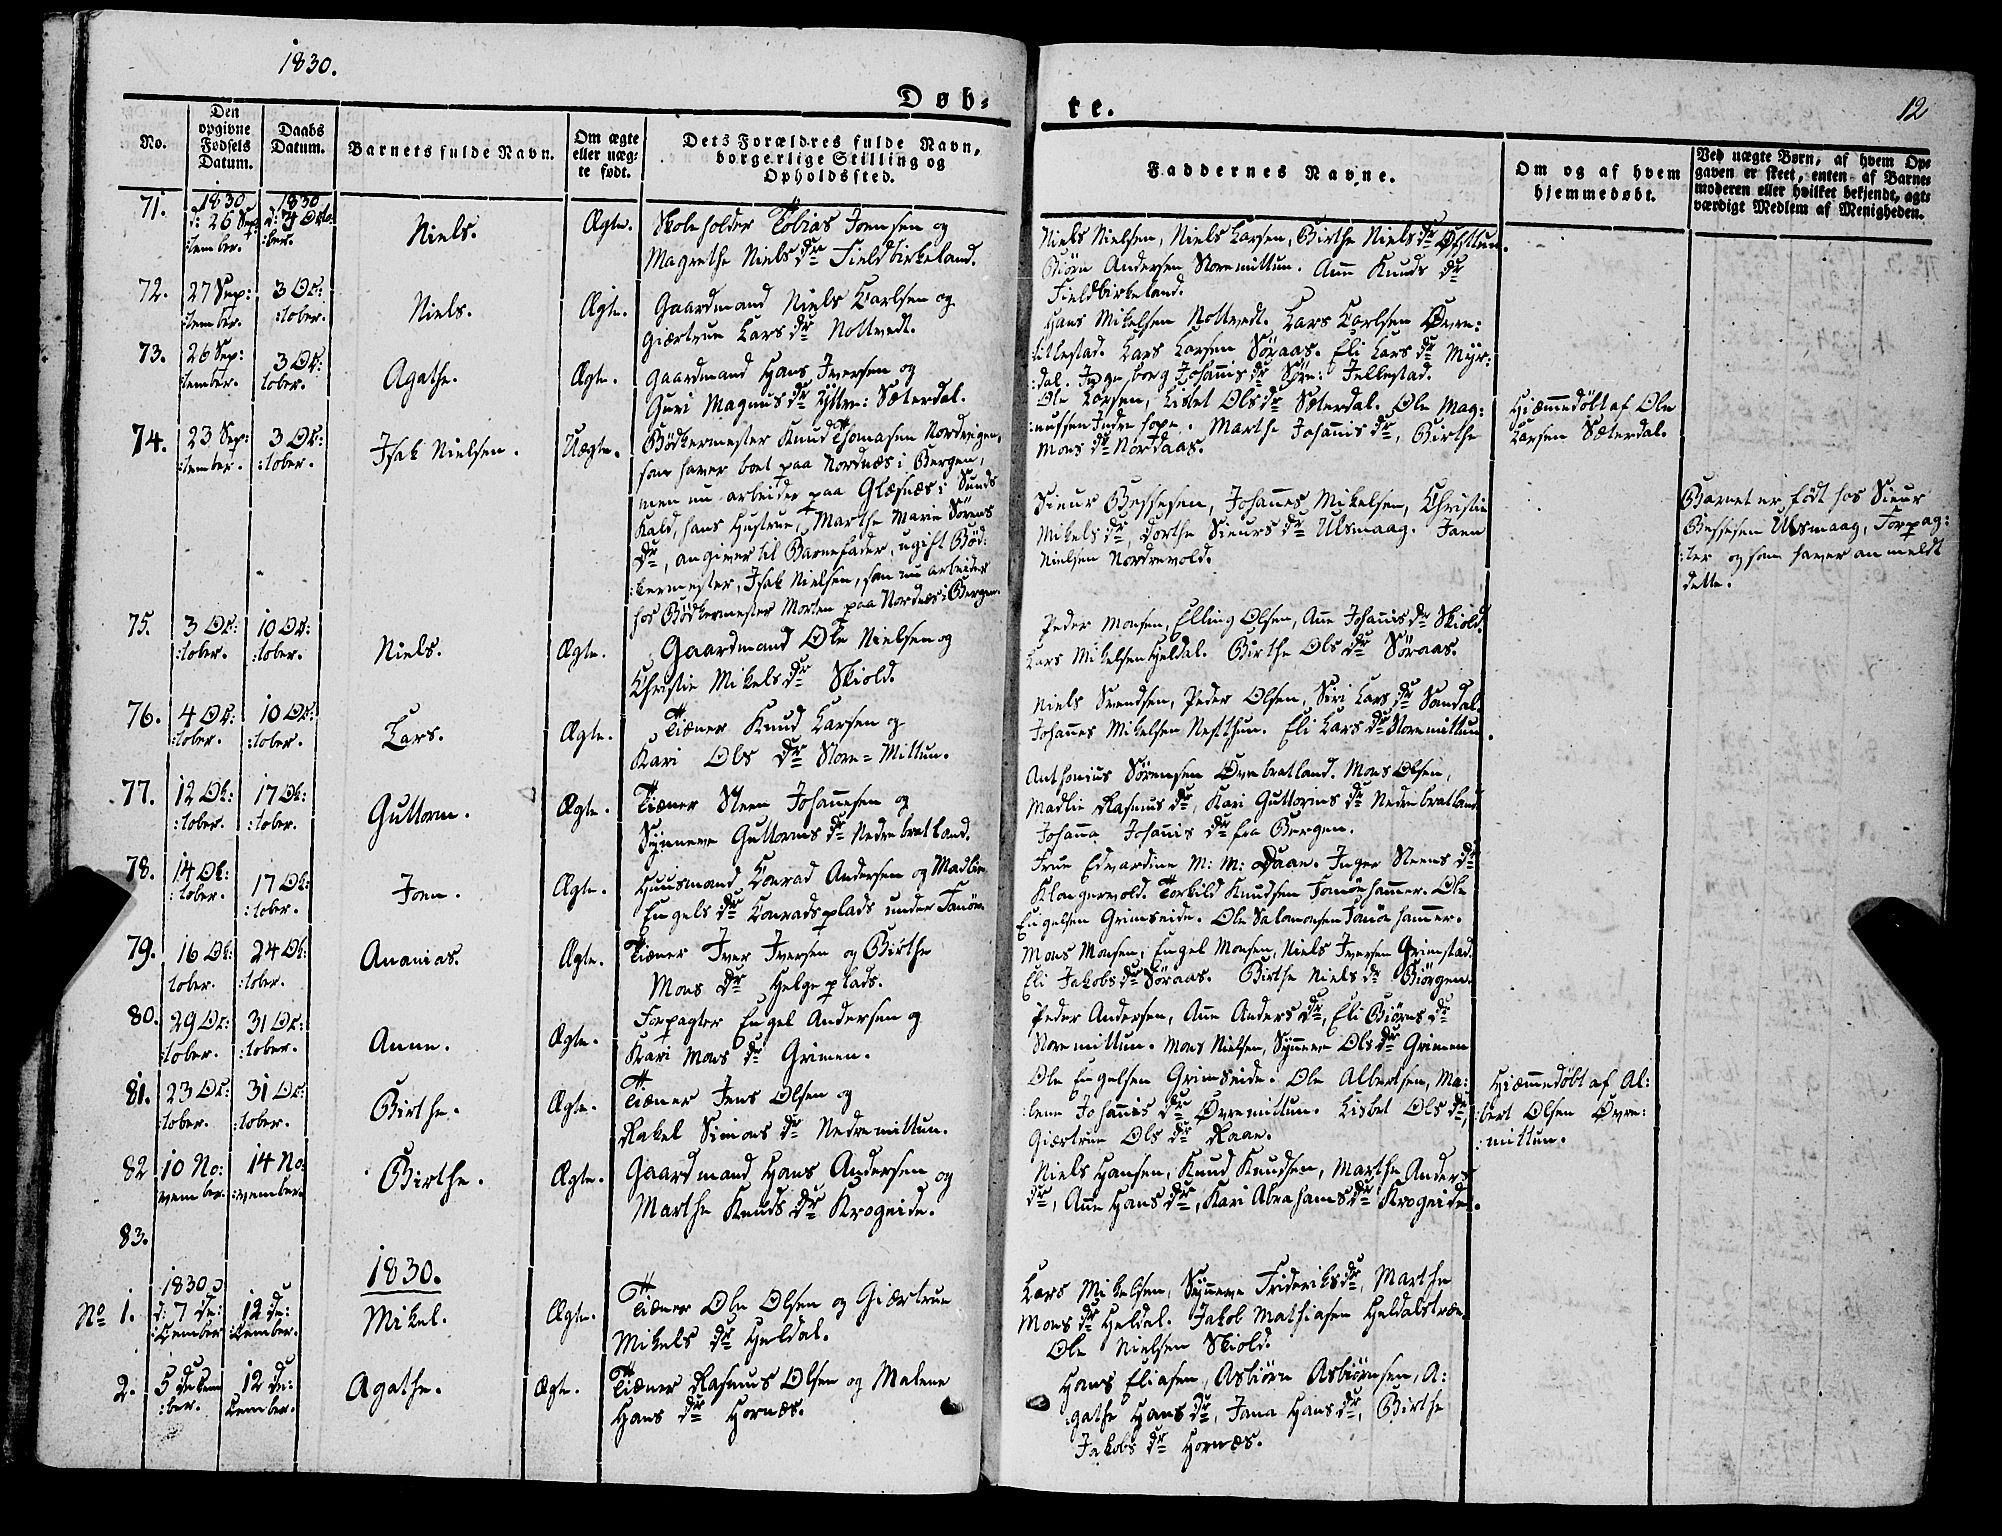 1830.
Døb-
te.
12
No.
Den
opgivne
Fødsels
Datum.
Daabs
Datum.
Barnets fulde Navn.
Om ægte
eller uæg-
te født.
Dets Forældres fulde Navn,
borgerlige Stilling og
Opholdssted.
Faddernes Navne.
Om og af hvem
hjemmedøbt.
Ved uægte Børn, af hvem Op-
gaven er skeet, enten af Barne-
moderen eller hvilket bekjendt, agt-
værdigt Medlem af Menigheden.
71.
1830
d: 26 Sep:
:tember.
1830
d: 3 Octo:
:ber.
Niels.
Ægte.
Skoleholder Tobias Jonnsen og
Magrethe Nielsdr Fieldbirkeland.
Niels Nielsen, Niels Larsen, Birthe Nielsdr Østtun.
Biörn Andersen Storemittun. Anne Knudsdr
Fieldbirkeland.
72.
27 Sep:
:tember.
3 Oc:
:tober.
Niels.
Ægte.
Gaardmand Niels Carlsen og
Giærtrue Larsdr Nottvedt.
Hans Mikelsen Nottvedt. Lars Carlsen Øvre:
titlestad. Lars Larsen Söraas. Eli Larsdr Myr:
:dal. Ingeborg Johannisdr Söre: Fellestad.
73.
26 Sep:
tember.
3 Oc:
tober.
Agathe.
Ægte.
Gaardmand Hans Iversen og
Guri Magnusdr Yttre: Sæterdal.
Ole Larsen, Lisbet Olsdr Sæterdal. Ole Mag:
:nussen Indre hope. Marthe Johannisdr, Birthe
Monsdr Nordaas.
Hiemmedöbt af Ole
Larsen Sæterdal.
74.
23 Sep:
:tember.
3 Oc:
:tober.
Isak Nielsen.
Uægte.
Bödkermester Knud Thomasen Nordvigen,
som haver boet paa Nordnæs i Bergen,
men nu arbeider paa Glæsnæs i Sunds
Kald, hans Hustrue, Marthe Marie Sörens
dr, angiver til Barnefader, ugift Böd:
:kermester, Isak Nielsen, som nu arbeider
hos Bödkermester Morten paa Nordnæs i Bergen.
Sieur Bessesen, Johannes Mikelsen, Christie
Mikelsdr, Dorthe Sieursdr Ulsmaag. Joen
Nielsen Nordrevold.
Barnet er født hos Sieur
Bessesen Ulsmaag, Forpag:
:ter og som haver anmeldt
dette.
75.
3 Oc:
:tober.
10 Oc:
:tober.
Niels.
Ægte.
Gaardmand Ole Nielsen og
Christie Mikelsdr Skiold.
Peder Monsen, Elling Olsen, Anne Johannisdr Skiold.
Lars Mikelsen Heldal. Birthe Olsdr Söraas.
76.
4 Oc:
:tober.
10 Oc:
:tober.
Lars.
Ægte.
Tiæner Knud Larsen og
Kari Olsdr Store=Mittun.
Niels Svendsen, Peder Olsen, Siri Larsdr Sandal.
Johannes Mikelsen Nestthun. Eli Larsdr Storemittun.
77.
12 Oc:
:tober.
17 Oc:
:tober.
Guttorm.
Ægte.
Tiæner Steen Johannesen og
Synneve Guttormsdr Nedrebratland.
Anthonius Sörensen Øvrebratland. Mons Olsen,
Madlie Rasmusdr, Kari Guttormsdr Nedrebratland.
Johanna Johannisdr fra Bergen.
78.
14 Oc:
:tober.
17 Oc:
:tober.
Joen.
Ægte.
Huusmand Conrad Andersen og Madlie
Engelsdr Conradsplads under Fanöe.
Frue Edvardine M: M: Daae. Inger Steensdr
Klongervold. Torkild Knudsen Fanöehammer. Ole
Engelsen Grimseide. Ole Salomonsen Fanöehammer.
79.
16 Oc:
tober.
24 Oc:
:tober.
Ananias.
Ægte.
Tiæner Iver Iversen og Birthe
Monsdr Helgeplads.
Mons Monsen, Engel Monsen, Niels Iversen Grimstad.
Eli Jakobsdr Söraas. Birthe Nielsdr Biörgen.
80.
29 Oc:
:tober.
31 Oc:
:tober.
Anne.
Ægte.
Forpagter Engel Andersen og
Kari Monsdr Grimen.
Peder Andersen, Anne Andersdr, Eli Biörnsdr
Storemittun. Mons Nielsen, Synneve Olsdr Grimen
81.
23 Oc:
:tober.
31 Oc:
:tober.
Birthe.
Ægte.
Tiæner Jens Olsen og
Rakel Simonsdr Nedremittun.
Ole Engelsen Grimseide. Ole Albertsen, Ma:
:lene Johannisdr Øvremittun. Lisbet Olsdr,
Giærtrue Olsdr Raae.
Hiemmedöbt af Al:
:bert Olsen Øvre:
:mittun.
82
10 No:
vember.
14 No:
:vember.
Birthe.
Ægte.
Gaardmand Hans Andersen og
Marthe Knudsdr Krogeide.
Niels Hansen, Knud Knudsen, Marthe Anders
dr, Anne Hansdr, Kari Abrahamsdr Krogeide.
83.
1830.
No 1.
1830
d: 7 De:
:cember
12 De:
:cember.
Mikel.
Ægte.
Tiæner Ole Olsen og Giærtrue
Mikelsdr Heldal.
Lars Mikelsen, Synneve Frideriksdr, Marthe
Monsdr Heldal. Jakob Mathiasen Heldalstræ
Ole Nielsen Skiold.
2.
5 Decem
:ber.
12 De:
cember.
Agathe.
Ægte.
Tiæner Rasmus Olsen og Malene
Hansdr Hornæs.
Hans Eliasen, Asbiörn Asbiörnsen, A:
:gathe Hansdr, Jana Hansdr, Birthe
Jakobsdr Hornæs.